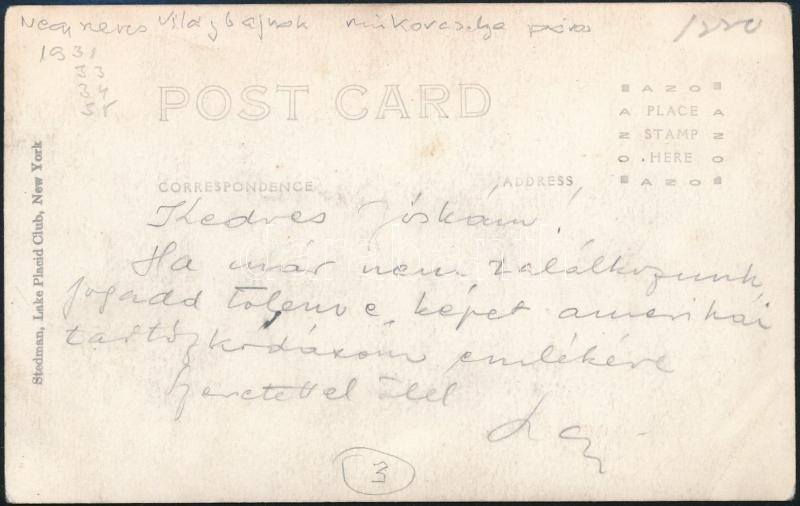 Négyszeres világbajnok műkorcsolya páros
1220
1931
33
34
35
POST CARD
AZO
PLACE
STAMP
HERE
AZO
CORRESPONDENCE
ADDRESS
Stedman, Lake Placid Club, New York
Kedves Jóskám!
Ha már nem találkozunk,
fogadd tőlem e képet amerikai
tartózkodásom emlékére
Szeretettel ölel
Laci
3